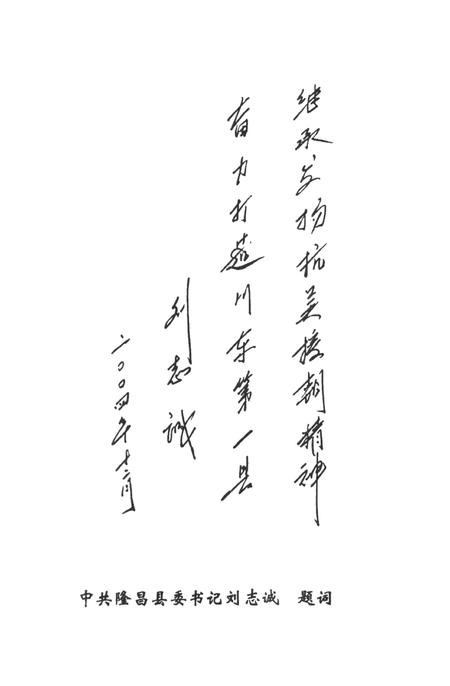 继承发扬抗美援朝精神
奋力打造川东第一县
刘志诚
二〇〇四年十二月
中共隆昌县委书记刘志诚　题词